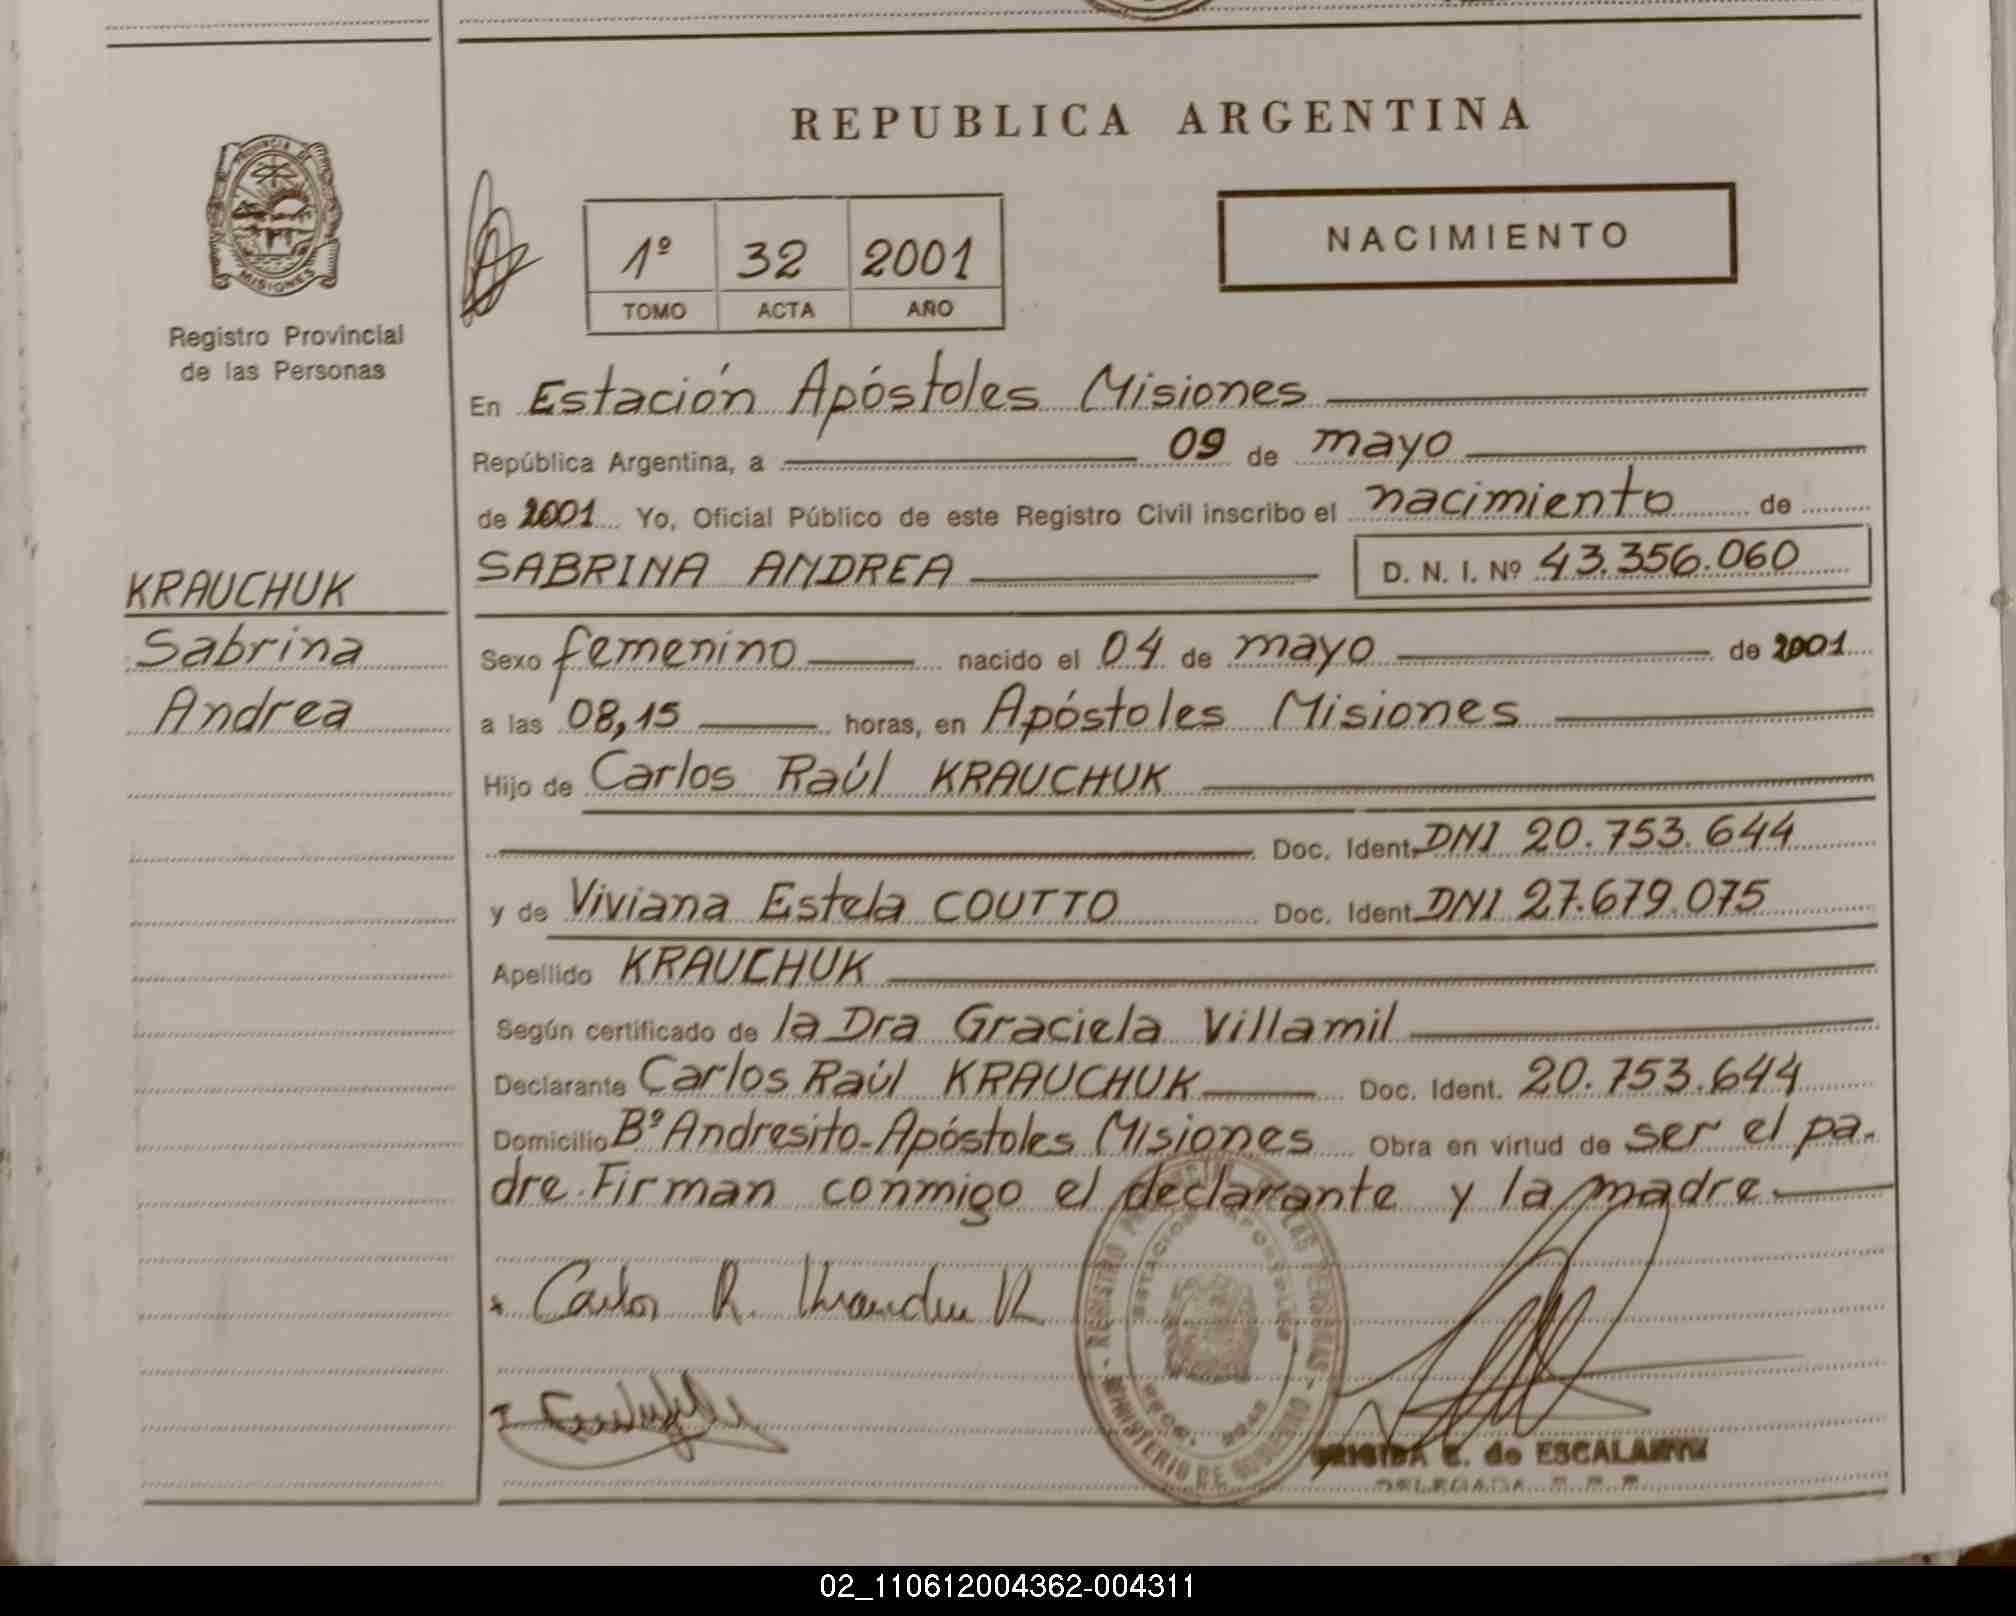 REPUBLICA ARGENTINA
PROVINCIA DE
MISIONES
Registro Provincial
de las Personas
1º 32 2001
TOMO ACTA AÑO
NACIMIENTO
En Estación Apóstoles Misiones
República Argentina, a 09 de mayo
de 2001 Yo, Oficial Público de este Registro Civil inscribo el nacimiento de
SABRINA ANDREA D. N. I. Nº 43.356.060
KRAUCHUK
Sabrina
Andrea
Sexo femenino nacido el 04 de mayo de 2001
a las 08,15 horas, en Apóstoles Misiones
Hijo de Carlos Raúl KRAUCHUK
Doc. Ident. DNI 20.753.644
y de Viviana Estela COUTTO Doc. Ident. DNI 27.679.075
Apellido KRAUCHUK
Según certificado de la Dra Graciela Villamil
Declarante Carlos Raúl KRAUCHUK Doc. Ident. 20.753.644
Domicilio Bº Andresito-Apóstoles Misiones Obra en virtud de ser el pa-
dre. Firman conmigo el declarante y la madre
Carlos R.
REGISTRO DE LAS PERSONAS
MINISTERIO DE GOBIERNO
ESTACION APOSTOLES
E. de ESCALANTE
DELEGADA
02_110612004362-004311